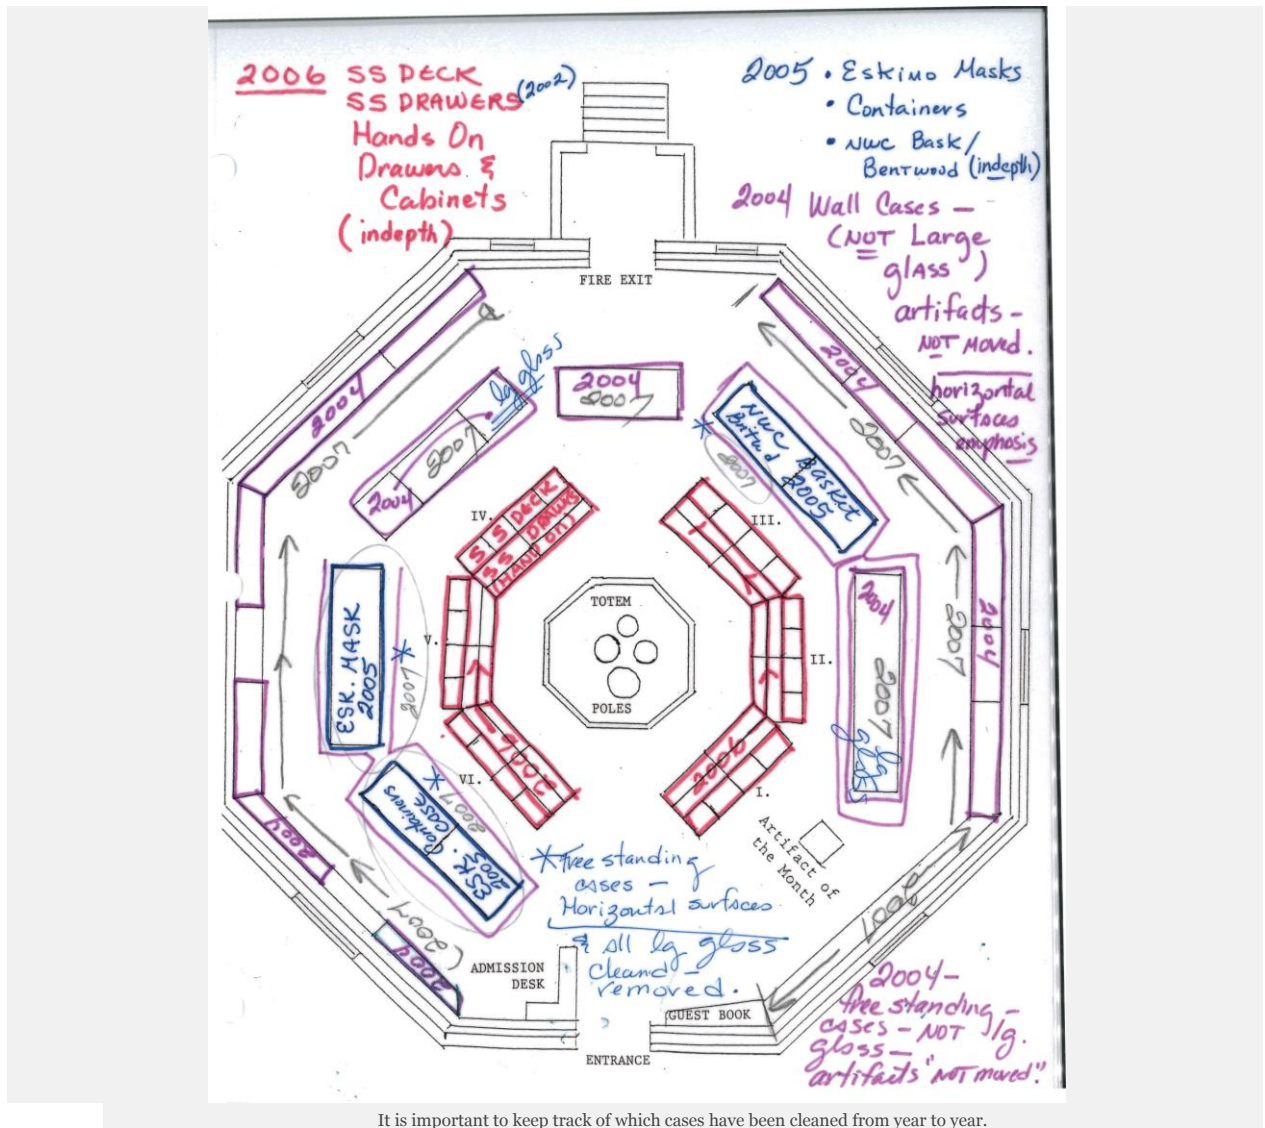 2006 SS DECK
SS DRAWERS (2002)
Hands On
Drawers &
Cabinets
(indepth)
2005 • Eskimo Masks
• Containers
• NWC Bask/
Bentwood (indepth)
2004 Wall Cases —
(NOT Large
glass)
artifacts -
NOT Moved.
horizontal
surfaces
emphasis
FIRE EXIT
2004
2007
2004
2007
lg glass
2004
2007
2004
2007
NWC Basket
Bntwd 2005
* 2007
2004
2007
IV.
SS DECK
SS DRAWERS
(HAND ON)
III.
TOTEM
POLES
V.
II.
ESK. MASK
2005
* 2007
2004
2007
lg
glass
2004
2007
VI.
2006
2006
I.
ESK. Containers
CASE
* 2007
Artifact of
the Month
2004
2007
2004
2007
* Free standing
cases —
Horizontal surfaces
& all lg glass
cleaned —
removed.
ADMISSION
DESK
GUEST BOOK
ENTRANCE
2004 —
free standing —
cases — NOT lg.
glass —
artifacts "NOT moved".
It is important to keep track of which cases have been cleaned from year to year.